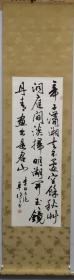 帝子瀟湘去不還空餘秋草
洞庭間淡掃明湖開玉鏡
丹青畫出是君山